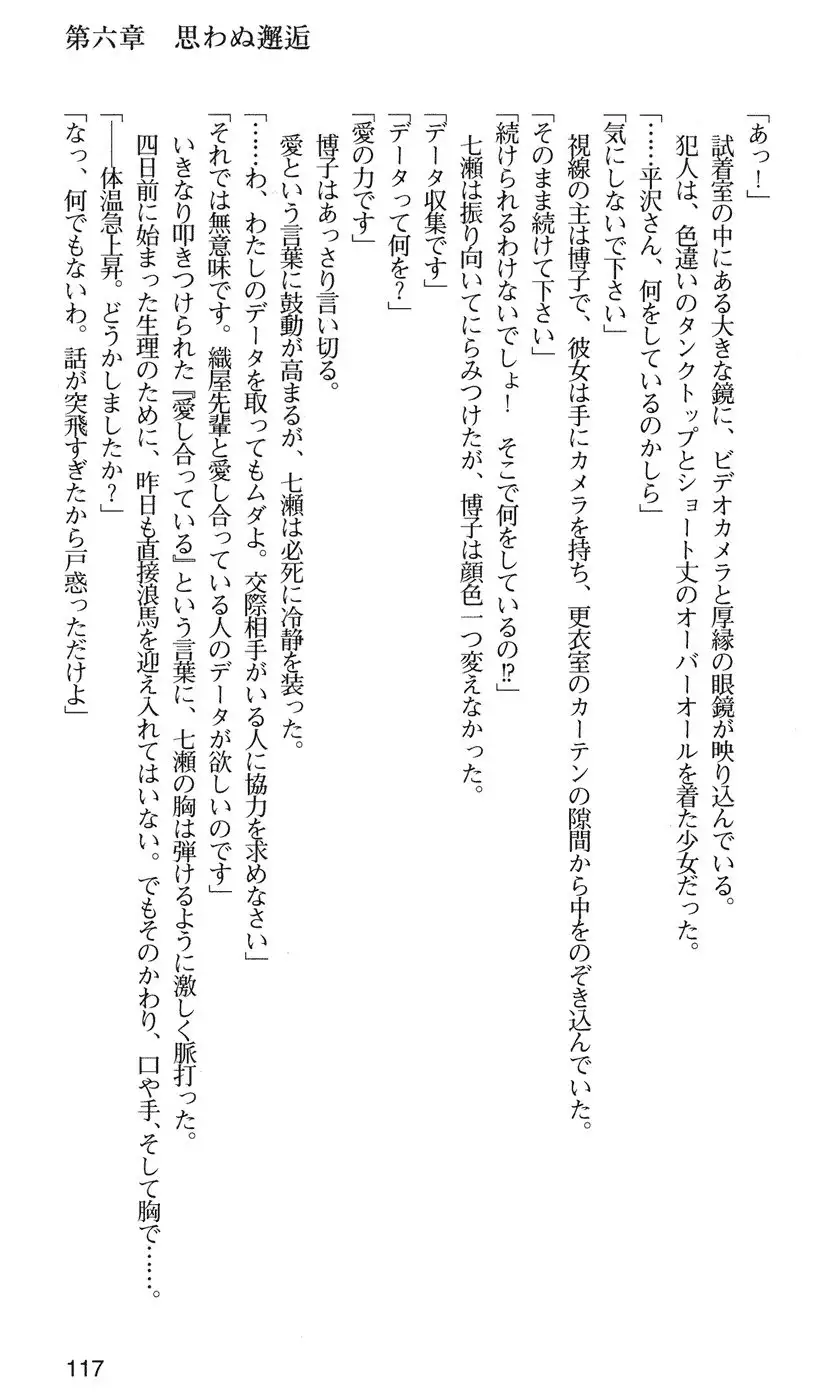 第六章　思わぬ邂逅
「あっ！」
試着室の中にある大きな鏡に、ビデオカメラと厚縁の眼鏡が映り込んでいる。
犯人は、色違いのタンクトップとショート丈のオーバーオールを着た少女だった。
「……平沢さん、何をしているのかしら」
「気にしないで下さい」
視線の主は博子で、彼女は手にカメラを持ち、更衣室のカーテンの隙間から中をのぞき込んでいた。
「そのまま続けて下さい」
「続けられるわけないでしょ！　そこで何をしているの!?」
七瀬は振り向いてにらみつけたが、博子は顔色一つ変えなかった。
「データ収集です」
「データって何を？」
「愛の力です」
博子はあっさり言い切る。
愛という言葉に鼓動が高まるが、七瀬は必死に冷静を装った。
「……わ、わたしのデータを取ってもムダよ。交際相手がいる人に協力を求めなさい」
「それでは無意味です。織屋先輩と愛し合っている人のデータが欲しいのです」
いきなり叩きつけられた『愛し合っている』という言葉に、七瀬の胸は弾けるように激しく脈打った。
四日前に始まった生理のために、昨日も直接浪馬を迎え入れてはいない。でもそのかわり、口や手、そして胸で……。
「――体温急上昇。どうかしましたか？」
「なっ、何でもないわ。話が突飛すぎたから戸惑っただけよ」
117